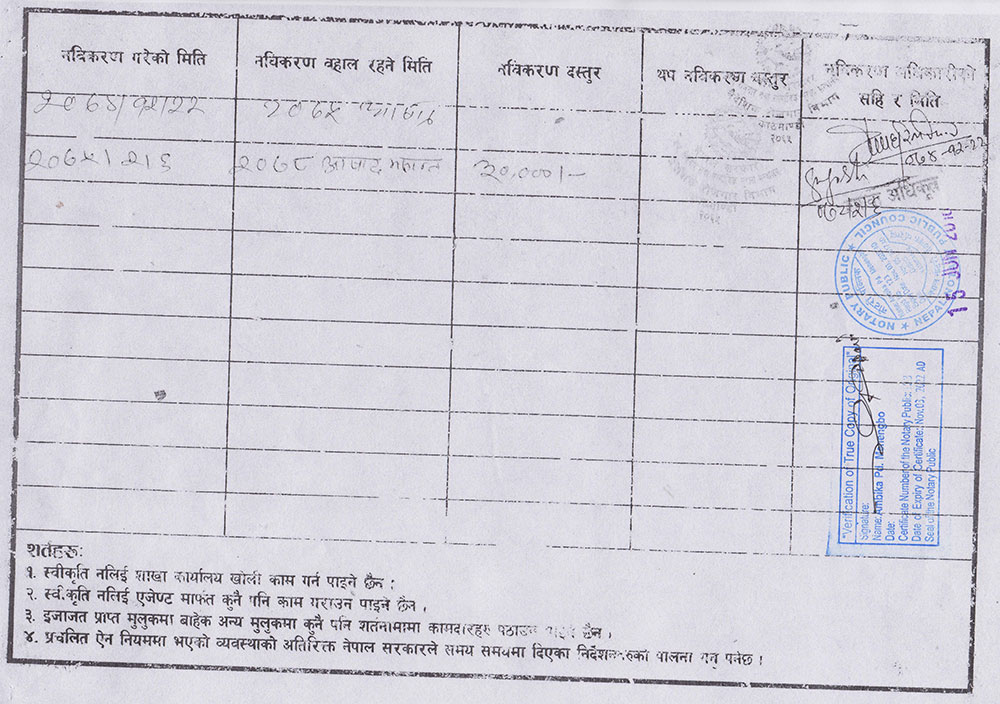 नविकरण गरेको मिति
नविकरण वहाल रहने मिति
नविकरण दस्तुर
थप नविकरण दस्तुर
नविकरण अधिकारीको
सहि र मिति
२०७४/१२/२२
२०७५
२०७८ आषाढ मसान्त
२०,०००।-
०७४-१२-२२
शाखा अधिकृत
NOTARY PUBLIC ★ NEPAL NOTARY PUBLIC COUNCIL ★
"Verification of True Copy of Original"
Signature:
Name: Ambika Pd.
Date:
Certificate Number of the Notary Public:
Date of Expiry of Certificate: Nov.03, 2022 AD
Seal of the Notary Public
शर्तहरू:
१. स्वीकृति नलिई शाखा कार्यालय खोली काम गर्न पाइने छैन ।
२. स्वीकृति नलिई एजेण्ट मार्फत कुनै पनि काम गराउन पाइने छैन ।
३. इजाजत प्राप्त मुलुकमा बाहेक अन्य मुलुकमा कुनै पनि शर्तनामामा कामदारहरु पठाउन पाइने छैन ।
४. प्रचलित ऐन नियममा भएको व्यवस्थाको अतिरिक्त नेपाल सरकारले समय समयमा दिएका निर्देशनहरुको पालना गर्नु पर्नेछ ।